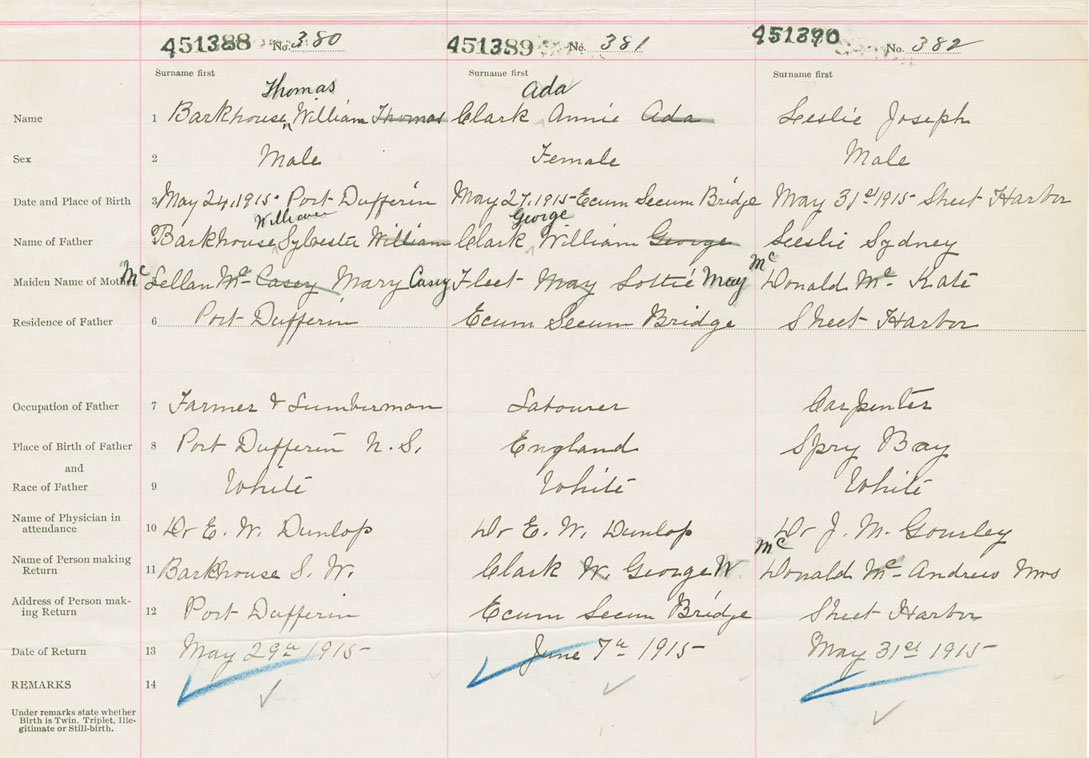 451388 No. 380 451389 No. 381 451390 No. 382
Surname first Surname first Surname first
Thomas Ada
Name 1 Barkhouse, William Thomas Clark Annie Ada Leslie Joseph
Sex 2 Male Female Male
Date and Place of Birth 3 May 24, 1915. Port Dufferin May 27, 1915 - Ecum Secum Bridge May 31st 1915 - Sheet Harbor
William George
Name of Father Barkhouse, Sylvester William Clark, William George Leslie Sydney
Mc
Maiden Name of Mother Mc Lellan Mc Casey Mary Casey Fleet May Lottie May Donald Mc Kate
Residence of Father 6 Port Dufferin Ecum Secum Bridge Sheet Harbor
Occupation of Father 7 Farmer & Lumberman Labourer Carpenter
Place of Birth of Father 8 Port Dufferin N.S. England Spry Bay
and
Race of Father 9 White White White
Name of Physician in
attendance 10 Dr E. W. Dunlop Dr E. W. Dunlop Dr J. M. Gourley
Mc
Name of Person making
Return 11 Barkhouse S. W. Clark W. George W. Donald Mc Andrew Mrs
Address of Person mak-
ing Return 12 Port Dufferin Ecum Secum Bridge Sheet Harbor
Date of Return 13 May 29th 1915 - June 7th 1915 - May 31st 1915 -
REMARKS 14
Under remarks state whether
Birth is Twin, Triplet, Ille-
gitimate or Still-birth.